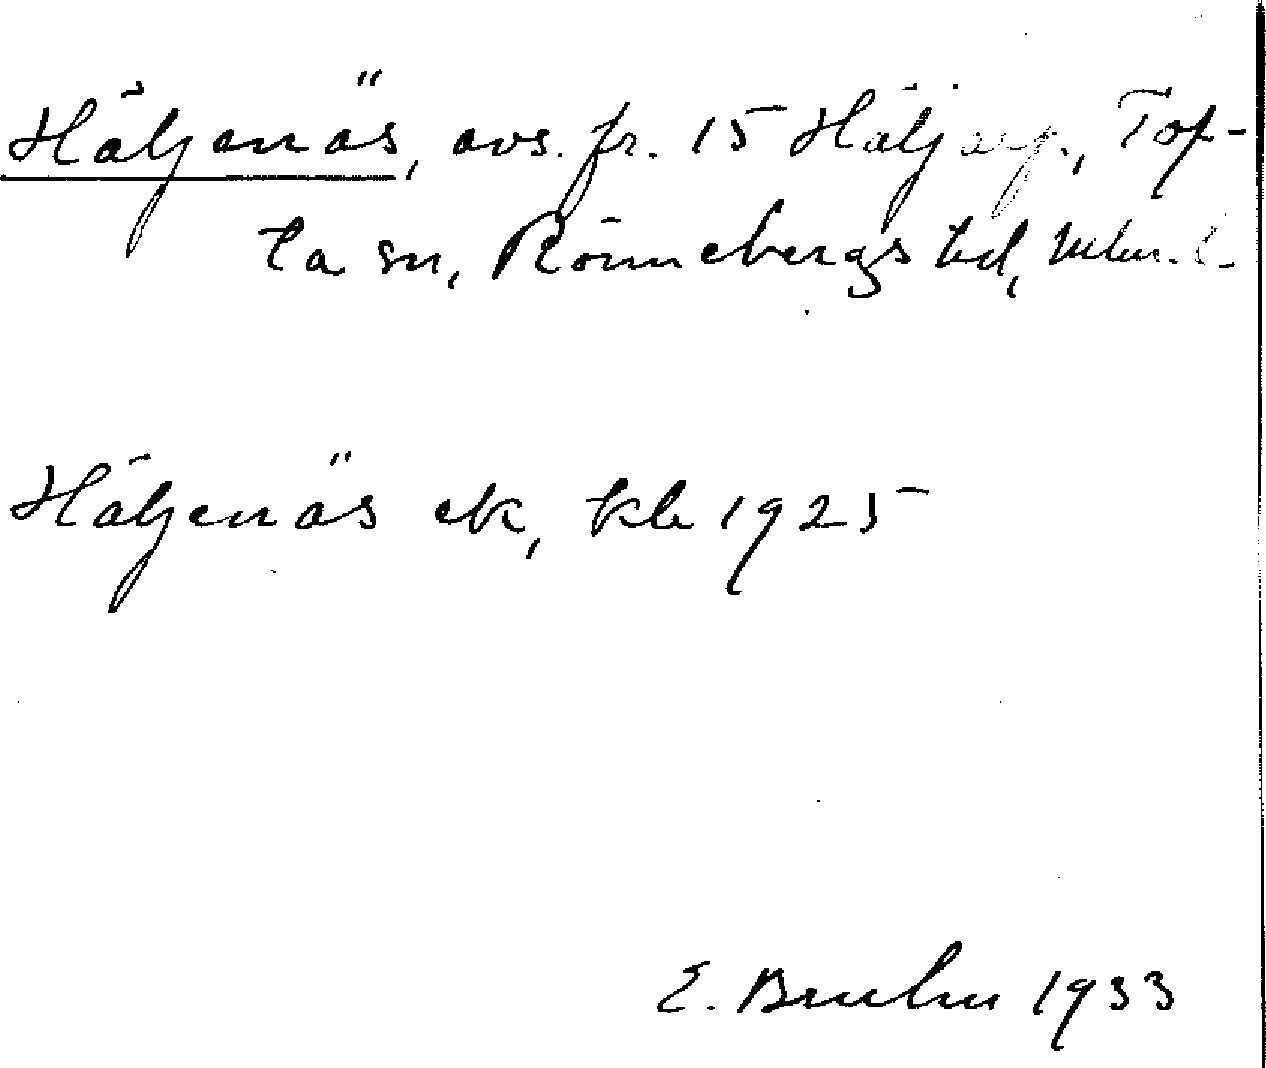 Häljenäs, avs. fr. 15 Häljarp, Tof-
ta sn, Rönnebergs hd, Mlm. l.
Häljenäs ek, kb 1925
E. Bruhn 1933